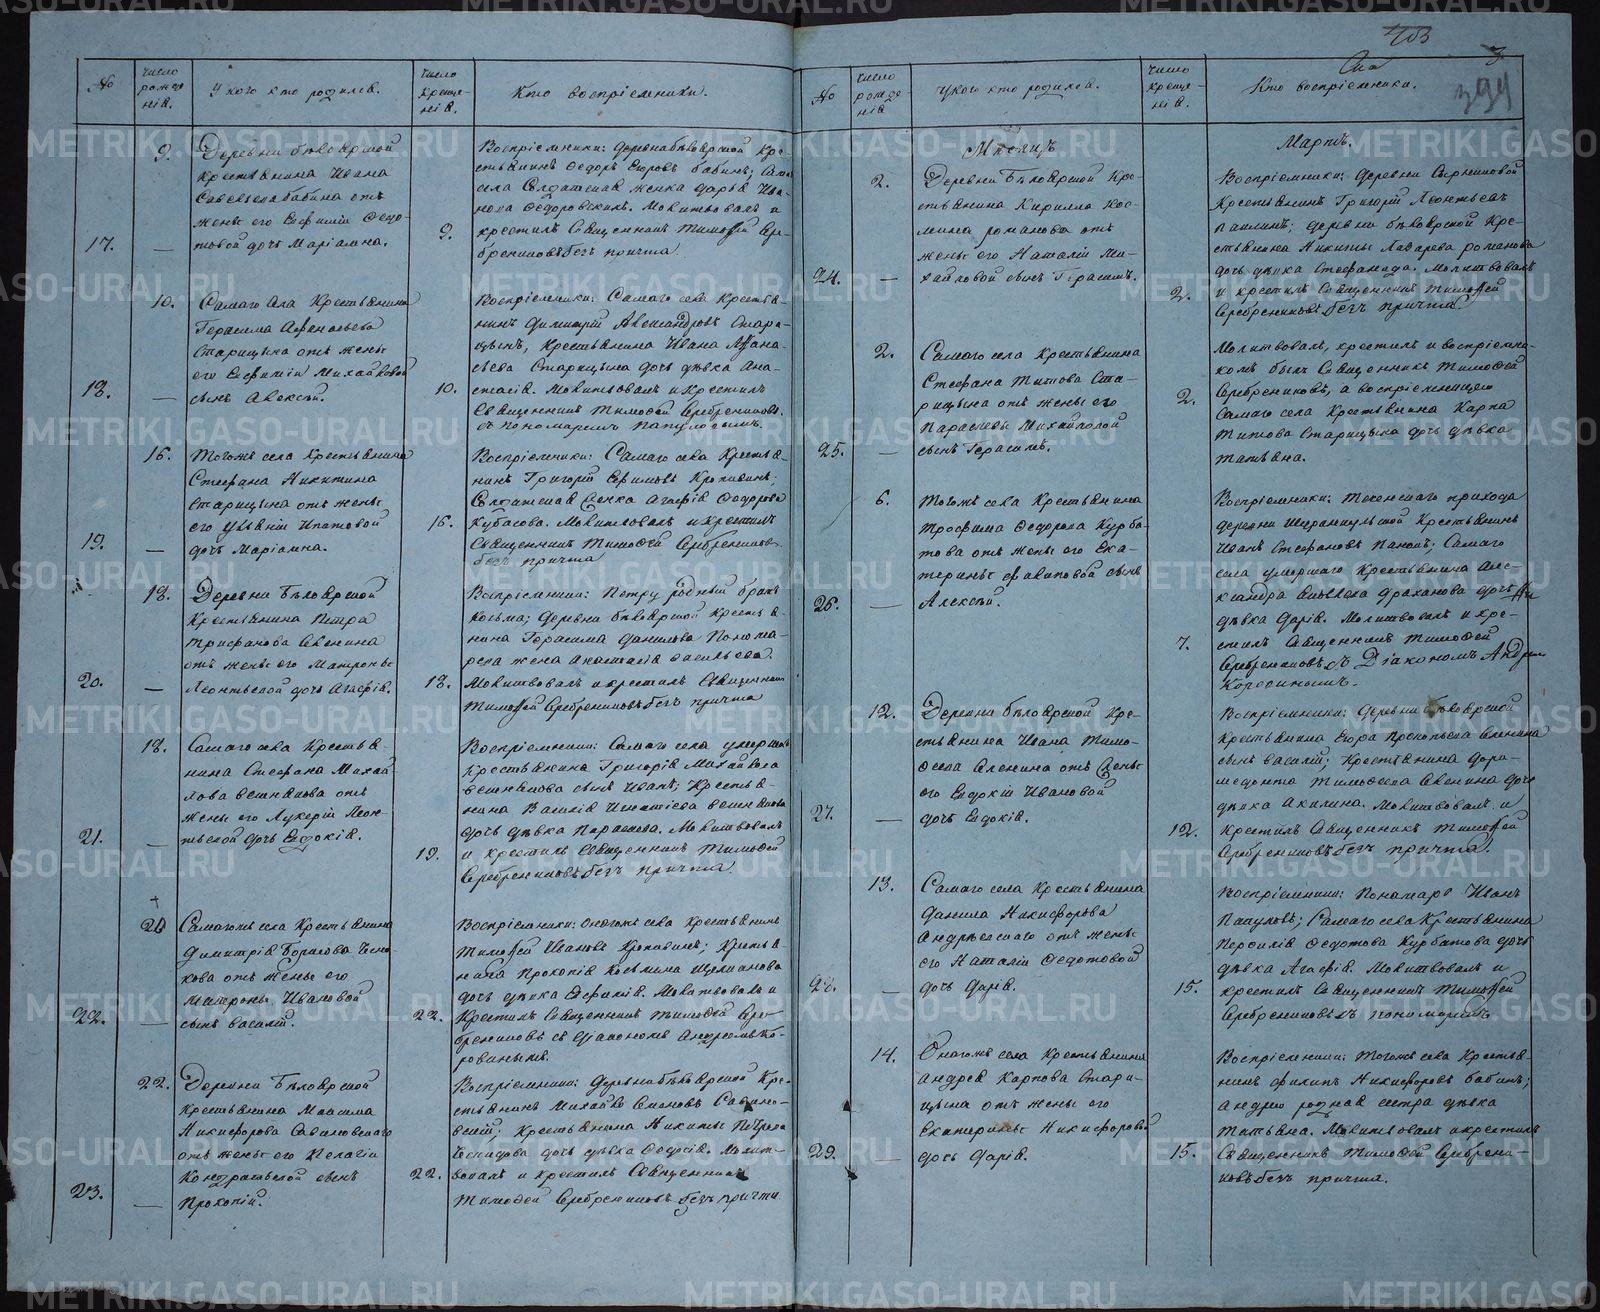 №
число рождені́я.
У кого кто родился.
число крещені́я.
Кто воспріемники.
9.
Деревни Бѣлоярской
крестьянина Ивана
Савельева Бабина отъ
жены его Евфиміи Ѳедо-
17. — товой дочь Маріамна.
9.
Воспріемники: деревни Бѣлоярской кре-
стьянинъ Ѳедоръ Егоровъ Бабинъ;
села Солдатская женка Дарья Ива-
нова Ѳедоровскихъ. Молитвовалъ и
крестилъ Священникъ Тимоѳей Сре-
бренниковъ безъ причта.
10.
Самаго села крестьянина
Герасима Аѳонасьева
Старицына отъ жены
его Евфиміи Михайловой
18. — сынъ Алексѣй.
10.
Воспріемники: Самаго села крестья-
нинъ Димитрій Александровъ Стари-
цынъ, крестьянина Ивана Аѳана-
сьева Старицына дочь дѣвка Ана-
стасія. Молитвовалъ и крестилъ
Священникъ Тимоѳей Сребренниковъ.
съ пономаремъ Папуловымъ.
16.
Тогожъ села крестьянина
Стефана Никитина
Старицына отъ жены
его Ульяніи Ипатовой
19. — дочь Маріамна.
16.
Воспріемники: Самаго села крестья-
нинъ Григорій Ефимовъ Кропивинъ;
Солдатская женка Агафія Ѳедорова
Кубасова. Молитвовалъ и крестилъ
Священникъ Тимоѳей Сребренниковъ
безъ причта
18.
Деревни Бѣлоярской
Крестьянина Петра
Трифанова Оленина
отъ жены его Матроны
20. — Леонтьевой дочь Агафія.
18.
Воспріемники: Петру родный братъ
Косьма; деревни Бѣлоярской крестья-
нина Герасима Данилова Понома-
рева жена Анастасія Васильева.
Молитвовалъ и крестилъ Священникъ
Тимоѳей Сребренниковъ безъ причта
18.
Самаго села Крестья-
нина Стефана Михай-
лова Вешнякова отъ
жены его Лукеріи Леон-
21. — тьевой дочь Евдокія.
19.
Воспріемники: Самаго села умершаго
Крестьянина Григорія Михайлова
Вешнякова сынъ Иванъ; Крестья-
нина Василія Игнатіева Вешнякова
дочь дѣвка Парасковья. Молитвовалъ
и крестилъ Священникъ Тимоѳей
Сребренниковъ безъ причта.
20
Самагожъ села Крестьянина
Димитрія Борисова
кова отъ жены его
Матроны Ивановой
22. — сынъ Василій.
22.
Воспріемники: Онагожъ села Крестьянинъ
Тимоѳей Ивановъ Кропивинъ; Крестья-
нина Прокопія Косьмина
дочь дѣвка Евфимія. Молитвовалъ и
Крестилъ Священникъ Тимоѳей Сре-
бренниковъ съ Діакономъ Андреемъ Ко-
ровинымъ.
22.
Деревни Бѣлоярской
Крестьянина Максима
Никифорова Савиновскаго
отъ жены его Пелагіи
Кондратьевой сынъ
23. — Прокопій.
22.
Воспріемники: Деревни Бѣлоярской Кре-
стьянинъ Михайло Симоновъ Савинов-
скій; Крестьянина Никиты Петрова
дочь дѣвка Ѳедосія. Молит-
вовалъ и крестилъ Священникъ
Тимоѳей Сребренниковъ безъ причта
403
3.
394
№
число рождені́я
У кого кто родился.
число крещені́я.
Кто воспріемники.
Мѣсяцъ
Мартъ.
2.
Деревни Бѣлоярской Кре-
стьянина Кирилла Кос-
мина Романова отъ
жены его Наталіи Ми-
24. — хайловой сынъ Герасимъ.
2.
Воспріемники: Деревни Сырниковой
Крестьянинъ Григорій Леонтьевъ
деревни Бѣлоярской Кре-
стьянина Никиты Лазарева Романова
дочь дѣвка Стефанида. Молитвовалъ
и крестилъ Священникъ Тимоѳей
Сребренниковъ безъ причта.
2.
Самаго села Крестьянина
Стефана Титова Ста-
рицына отъ жены его
Парасковьи Михайловой
25. — сынъ Герасимъ.
2.
Молитвовалъ, крестилъ и воспріемни-
комъ былъ Священникъ Тимоѳей
Сребренниковъ, а воспріемницею
Самаго села Крестьянина Карпа
Титова Старицына дочь дѣвка
Татьяна.
6.
Тогожъ села Крестьянина
Трофима Ѳедорова Курба-
това отъ жены его Ека-
терины Филиповой сынъ
26. — Алексѣй.
7.
Воспріемники: Теченскаго прихода
деревни Шеранкульской Крестьянинъ
Иванъ Стефановъ Самаго
села умершаго Крестьянина Але-
ксандра дочь
дѣвка Дарія. Молитвовалъ и кре-
стилъ Священникъ Тимоѳей
Сребренниковъ съ Діакономъ Андреемъ
Коровинымъ.
12.
Деревни Бѣлоярской Кре-
стьянина Ивана Тимо-
ѳеева Оленина отъ жены
его Евдокіи Ивановой
27. — дочь Евдокія.
12.
Воспріемники: Деревни Бѣлоярской
Крестьянина Егора Прокопьева Оленина
сынъ Василій; Крестьянина Дори-
медонта Тимоѳеева Оленина дочь
дѣвка Акилина. Молитвовалъ и
Крестилъ Священникъ Тимоѳей
Сребренниковъ безъ причта.
13.
Самаго села Крестьянина
Данила Никифорова
Андреевскаго отъ жены
его Наталіи Ѳедотовой
28. — дочь Дарія.
15.
Воспріемники: Пономарь Иванъ
Папуловъ; Самаго села Крестьянина
Персилія Ѳедотова Курбатова дочь
дѣвка Агафія. Молитвовалъ и
крестилъ Священникъ Тимоѳей
Сребренниковъ съ пономаремъ
14.
Онагожъ села Крестьянина
Андрея Карпова Стари-
цына отъ жены его
Екатерины Никифоровой
29. — дочь Дарія.
15.
Воспріемники: Тогожъ села Крестья-
нинъ Филипъ Никифоровъ Бабинъ;
Андрею родная сестра дѣвка
Татьяна. Молитвовалъ и крестилъ
Священникъ Тимоѳей Сребренни-
ковъ безъ причта.
METRIKI.GASO-URAL.RU